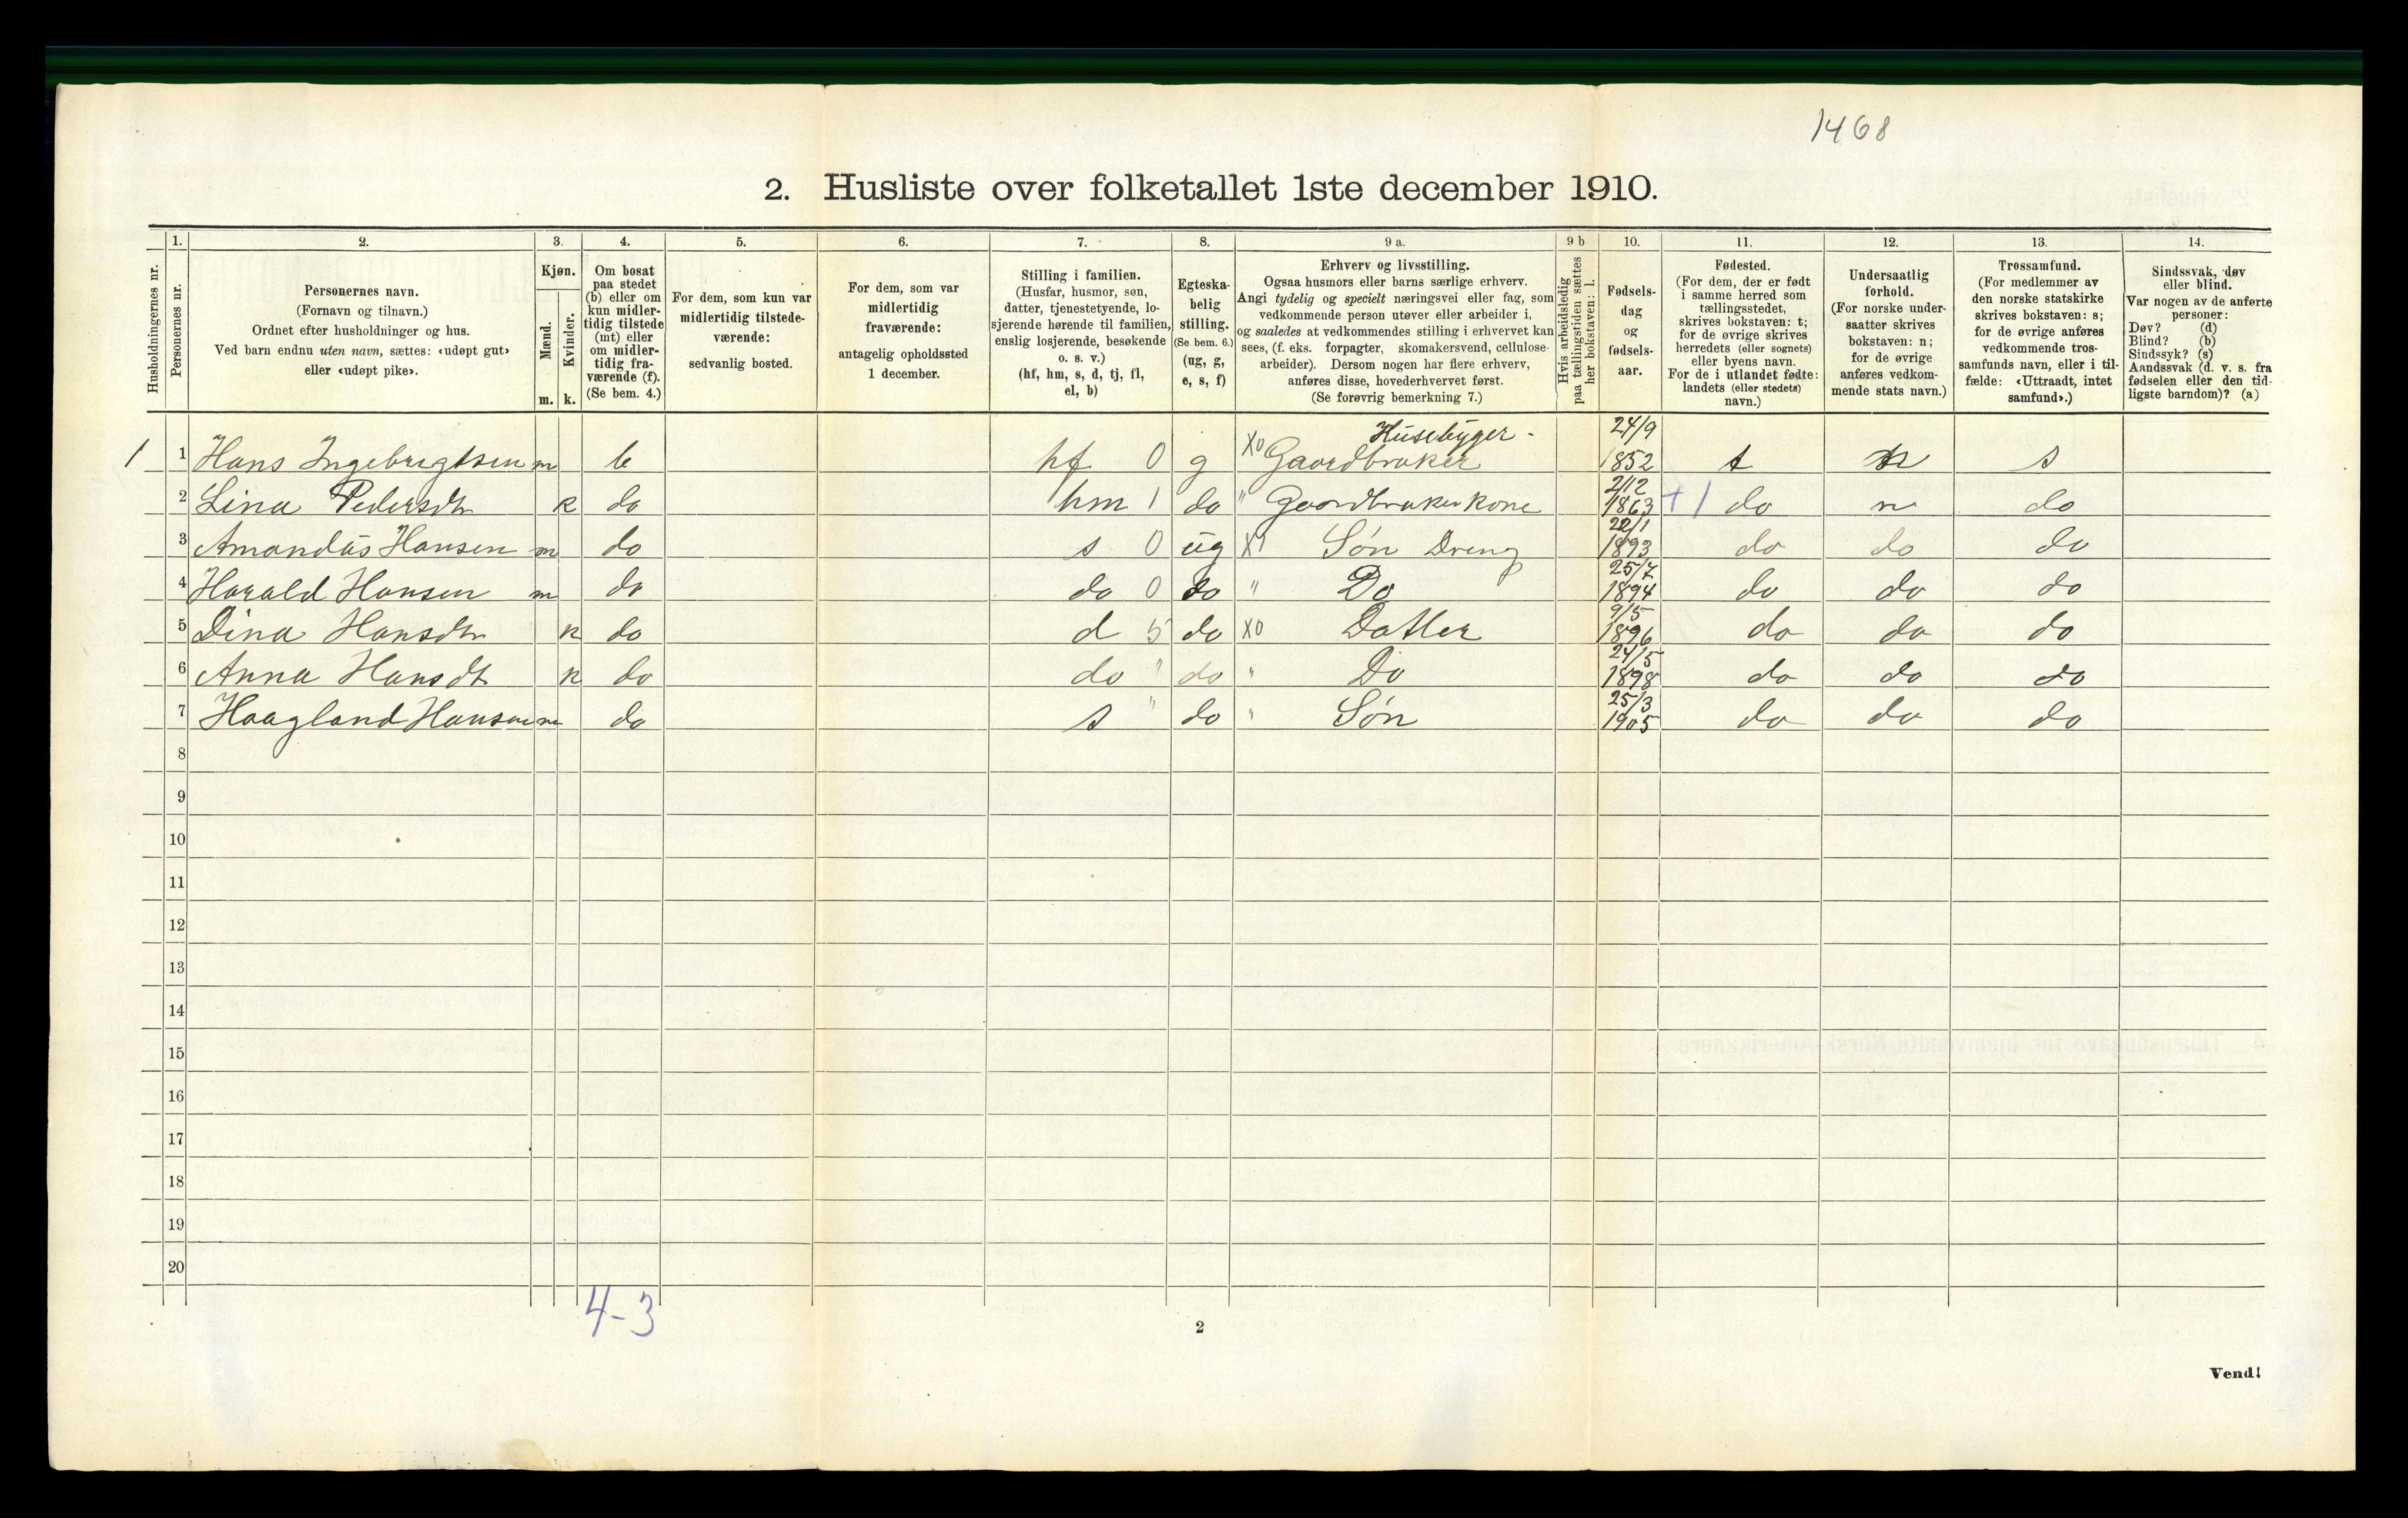 1468
2. Husliste over folketallet 1ste december 1910.
1. 2. 3. 4. 5. 6. 7. 8. 9 a. 9 b 10. 11. 12. 13. 14.
Husholdningernes nr.
Personernes nr.
Personernes navn.
(Fornavn og tilnavn.)
Ordnet efter husholdninger og hus.
Ved barn endnu uten navn, sættes: «udøpt gut»
eller «udøpt pike».
Kjøn.
Mænd.
Kvinder.
m. k.
Om bosat
paa stedet
(b) eller om
kun midler-
tidig tilstede
(mt) eller
om midler-
tidig fra-
værende (f).
(Se bem. 4.)
For dem, som kun var
midlertidig tilstede-
værende:
sedvanlig bosted.
For dem, som var
midlertidig
fraværende:
antagelig opholdssted
1 december.
Stilling i familien.
(Husfar, husmor, søn,
datter, tjenestetyende, lo-
sjerende hørende til familien,
enslig losjerende, besøkende
o. s. v.)
(hf, hm, s, d, tj, fl,
el, b)
Egteska-
belig
stilling.
(Se bem. 6.)
(ug, g,
e, s, f)
Erhverv og livsstilling.
Ogsaa husmors eller barns særlige erhverv.
Angi tydelig og specielt næringsvei eller fag, som
vedkommende person utøver eller arbeider i,
og saaledes at vedkommendes stilling i erhvervet kan
sees, (f. eks. forpagter, skomakersvend, cellulose-
arbeider). Dersom nogen har flere erhverv,
anføres disse, hovederhvervet først.
(Se forøvrig bemerkning 7.)
Hvis arbeidsledig
paa tællingstiden sættes
her bokstaven: l.
Fødsels-
dag
og
fødsels-
aar.
Fødested.
(For dem, der er født
i samme herred som
tællingsstedet,
skrives bokstaven: t;
for de øvrige skrives
herredets (eller sognets)
eller byens navn.
For de i utlandet fødte:
landets (eller stedets)
navn.)
Undersaatlig
forhold.
(For norske under-
saatter skrives
bokstaven: n;
for de øvrige
anføres vedkom-
mende stats navn.)
Trossamfund.
(For medlemmer av
den norske statskirke
skrives bokstaven: s;
for de øvrige anføres
vedkommende tros-
samfunds navn, eller i til-
fælde: «Uttraadt, intet
samfund».)
Sindssvak, døv
eller blind.
Var nogen av de anførte
personer:
Døv? (d)
Blind? (b)
Sindssyk? (s)
Aandssvak (d. v. s. fra
fødselen eller den tid-
ligste barndom)? (a)
Husebyger - 24/9
1 1 Hans Ingebrigtsen m b hf 0 g X0 Gaardbruker 1852 t n s
2/12
2 Lina Pedersdtr k do hm 1 do " Gaardbrukerkone 1863 +1 do n do
22/1
3 Amandus Hansen m do s 0 ug X1 Søn Dreng 1893 do do do
25/7
4 Harald Hansen m do do 0 do " Do 1894 do do do
9/5
5 Dina Hansdtr k do d 5 do X0 Datter 1896 do do do
24/5
6 Anna Hansdt k do do " do " Do 1898 do do do
25/3
7 Haagland Hansen m do s " do " Søn 1905 do do do
8
9
10
11
12
13
14
15
16
17
18
19
20
4-3
2
Vend!